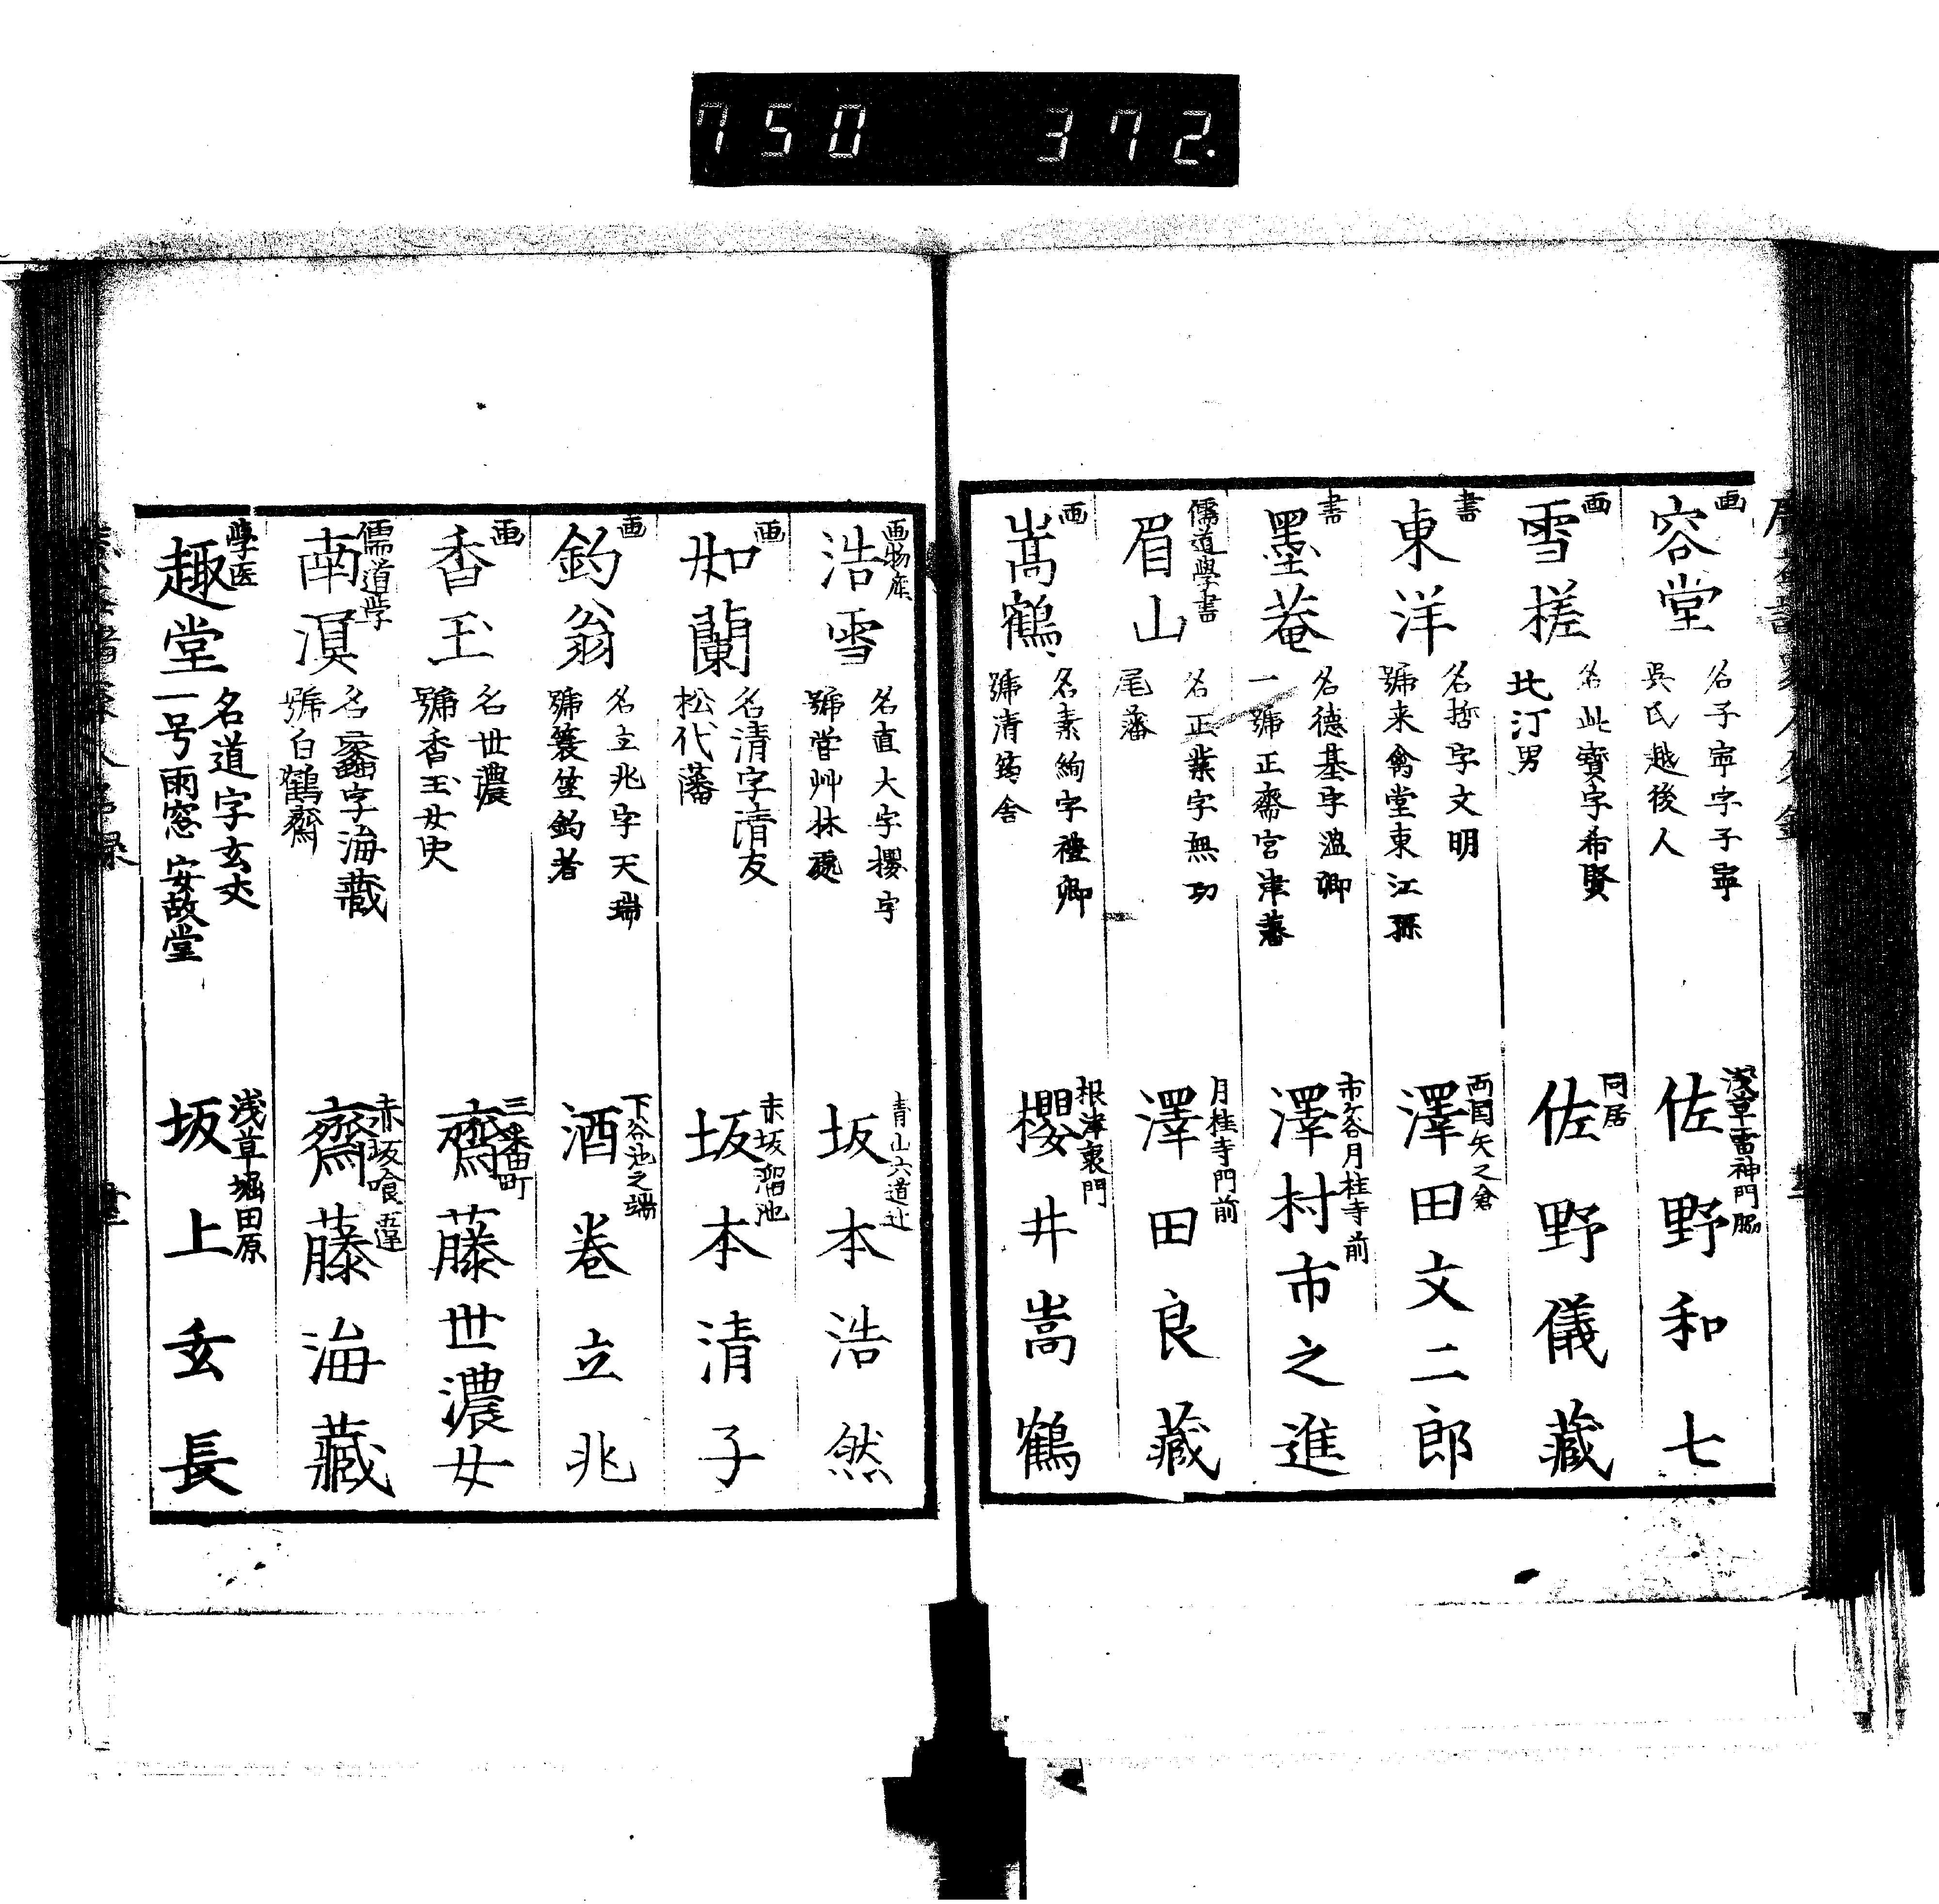 750 372.
画
容堂
名子寧字子寧
呉氏越後人
浅草雷神門脇
佐野和七
画
雪槎
名此寶字希賢
北汀男
同居
佐野儀藏
書
東洋
名哲字文明
號来禽堂東江孫
両国矢之倉
澤田文二郎
書
墨菴
名德基字温卿
一號正齋宮津藩
市ヶ谷月桂寺前
澤村市之進
儒道學書
眉山
名正業字無功
尾藩
月桂寺門前
澤田良藏
画
嵩鶴
名素絢字禮卿
號清筠舎
根津裏門
櫻井嵩鶴
画物産
浩雪
名直大字櫻宇
號嘗艸林處
青山六道辻
坂本浩然
画
如蘭
名清字清友
松代藩
赤坂溜池
坂本清子
画
釣翁
名立兆字天瑞
號簑笠釣者
下谷池之端
酒巻立兆
画
香玉
名世濃
號香玉女史
三番町
齋藤世濃女
儒道学
南溟
名蠡字海藏
號白鶴齋
赤坂喰違
齋藤海藏
學医
趣堂
名道字玄丈
一号雨窓 安故堂
浅草堀田原
坂上玄長